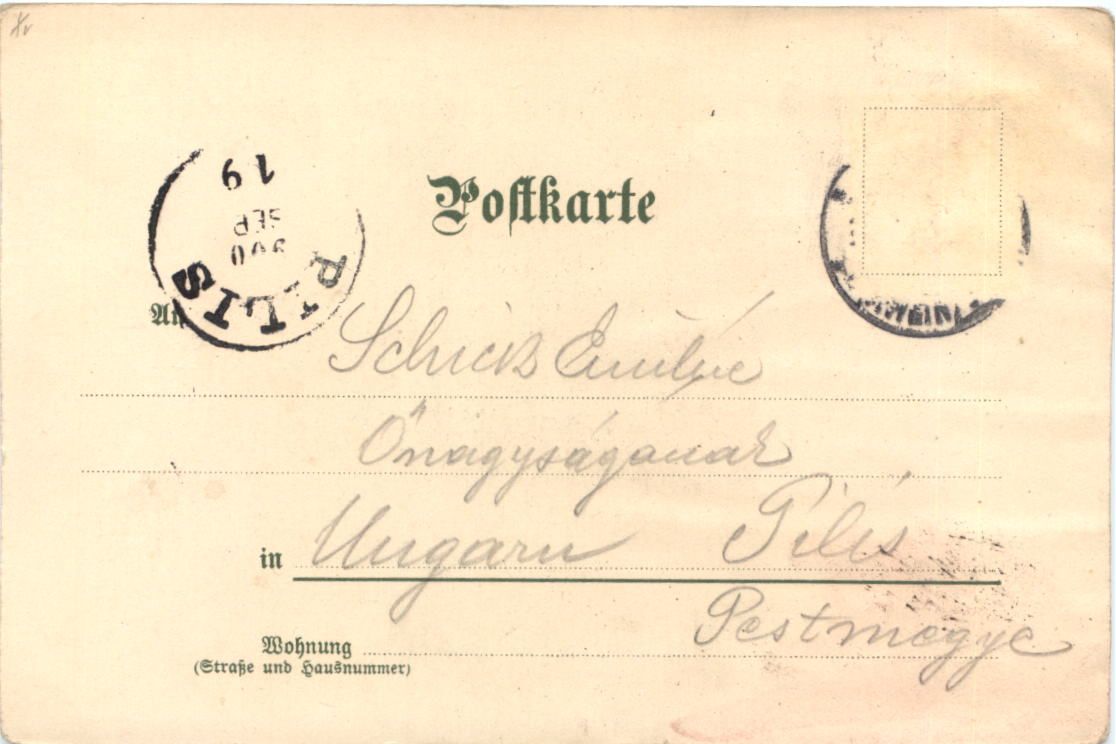 Postkarte
PILIS
900
SEP
19
An
Schick Emilné
Őnagyságának
in Ungarn Pilis
Pestmegye
Wohnung
(Straße und Hausnummer)